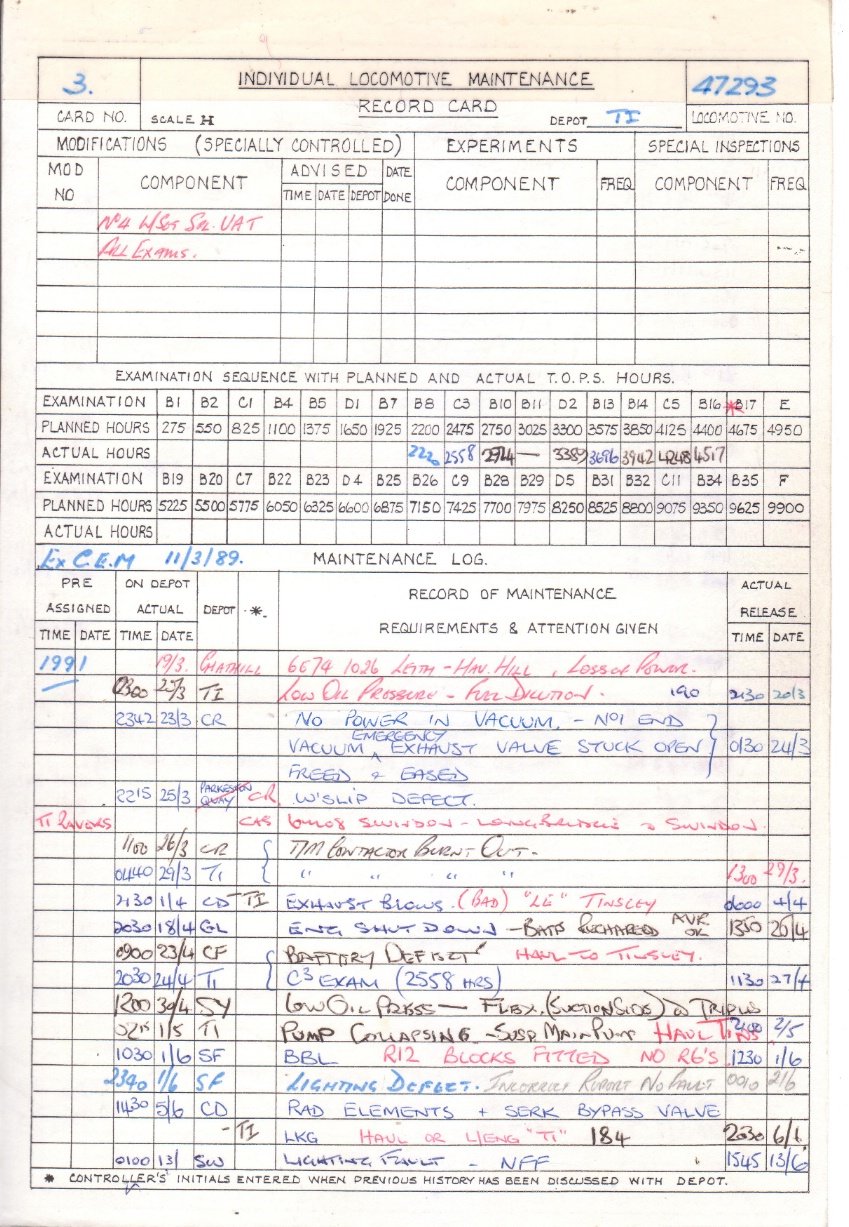 3. INDIVIDUAL LOCOMOTIVE MAINTENANCE 47293
CARD NO. SCALE H RECORD CARD DEPOT TI LOCOMOTIVE NO.
MODIFICATIONS (SPECIALLY CONTROLLED) EXPERIMENTS SPECIAL INSPECTIONS
MOD NO COMPONENT ADVISED DATE DONE COMPONENT FREQ COMPONENT FREQ
TIME DATE DEPOT
ALL EXAMS.
EXAMINATION SEQUENCE WITH PLANNED AND ACTUAL T.O.P.S. HOURS.
EXAMINATION B1 B2 C1 B4 B5 D1 B7 B8 C3 B10 B11 D2 B13 B14 C5 B16 *B17 E
PLANNED HOURS 275 550 825 1100 1375 1650 1925 2200 2475 2750 3025 3300 3575 3850 4125 4400 4675 4950
ACTUAL HOURS 2558 — 3389 3696 3942 4248 4517
EXAMINATION B19 B20 C7 B22 B23 D4 B25 B26 C9 B28 B29 D5 B31 B32 C11 B34 B35 F
PLANNED HOURS 5225 5500 5775 6050 6325 6600 6875 7150 7425 7700 7975 8250 8525 8800 9075 9350 9625 9900
ACTUAL HOURS
Ex C.E.M 11/3/89. MAINTENANCE LOG.
PRE ASSIGNED ON DEPOT ACTUAL DEPOT *. RECORD OF MAINTENANCE ACTUAL RELEASE
REQUIREMENTS & ATTENTION GIVEN
TIME DATE TIME DATE TIME DATE
1991 19/3. CHATHILL 6E74 1026 LEITH - HAV. HILL, LOSS OF POWER.
TI LOW OIL PRESSURE - FUEL DILUTION. 190 2130 20/3
2342 23/3 CR NO POWER IN VACUUM. - NO1 END
VACUUM EMERGENCY EXHAUST VALVE STUCK OPEN 0130 24/3
FREED & EASED
2215 25/3 PARKESTON QUAY CR W'SLIP DEFECT.
SWINDON - LONGBRIDGE SWINDON.
1100 26/3 CR T/M CONTACTOR BURNT OUT.
0440 29/3 TI " " " " 1300 29/3.
2130 1/4 CD - TI EXHAUST BLOWS. (BAD) "LE" TINSLEY 0000 4/4
2030 18/4 GL ENG SHUT DOWN - BATS RECHARGED AVR OK 1350 20/4
0900 23/4 CF BATTERY DEFECT HAUL TO TINSLEY.
2030 24/4 TI C3 EXAM (2558 HRS) 1130 27/4
1200 30/4 SY LOW OIL PRESS — FLEX. (SUCTION SIDE) TRIPLE
0215 1/5 TI PUMP COLLAPSING - SUSP MAIN PUMP HAUL TINS 2/5
1030 1/6 SF BBL R12 BLOCKS FITTED NO R6'S 1230 1/6
2340 1/6 SF LIGHTING DEFECT. INCORRECT REPORT NO FAULT 0010 2/6
1430 5/6 CD RAD ELEMENTS + SERK BYPASS VALVE
- TI LKG HAUL OR L/ENG "TI" 184 2030 6/6
0100 13/ SW LIGHTING FAULT - NFF 1545 13/6
* CONTROLLER'S INITIALS ENTERED WHEN PREVIOUS HISTORY HAS BEEN DISCUSSED WITH DEPOT.